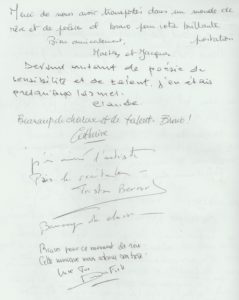 Merci de nous avoir transportés dans un monde de
rêve et de poésie et bravo pour votre brillante
prestation
Bien amicalement,
et Jacques
Devant autant de poésie de
sensibilité et de talent, j'en étais
presque aux larmes.
Claude.
Beaucoup de chaleur et de talent. Bravo!
Catherine
j'ai aimé l'artiste
Tristan
Beaucoup de
Bravo pour ce moment de rêve
Cette musique nous